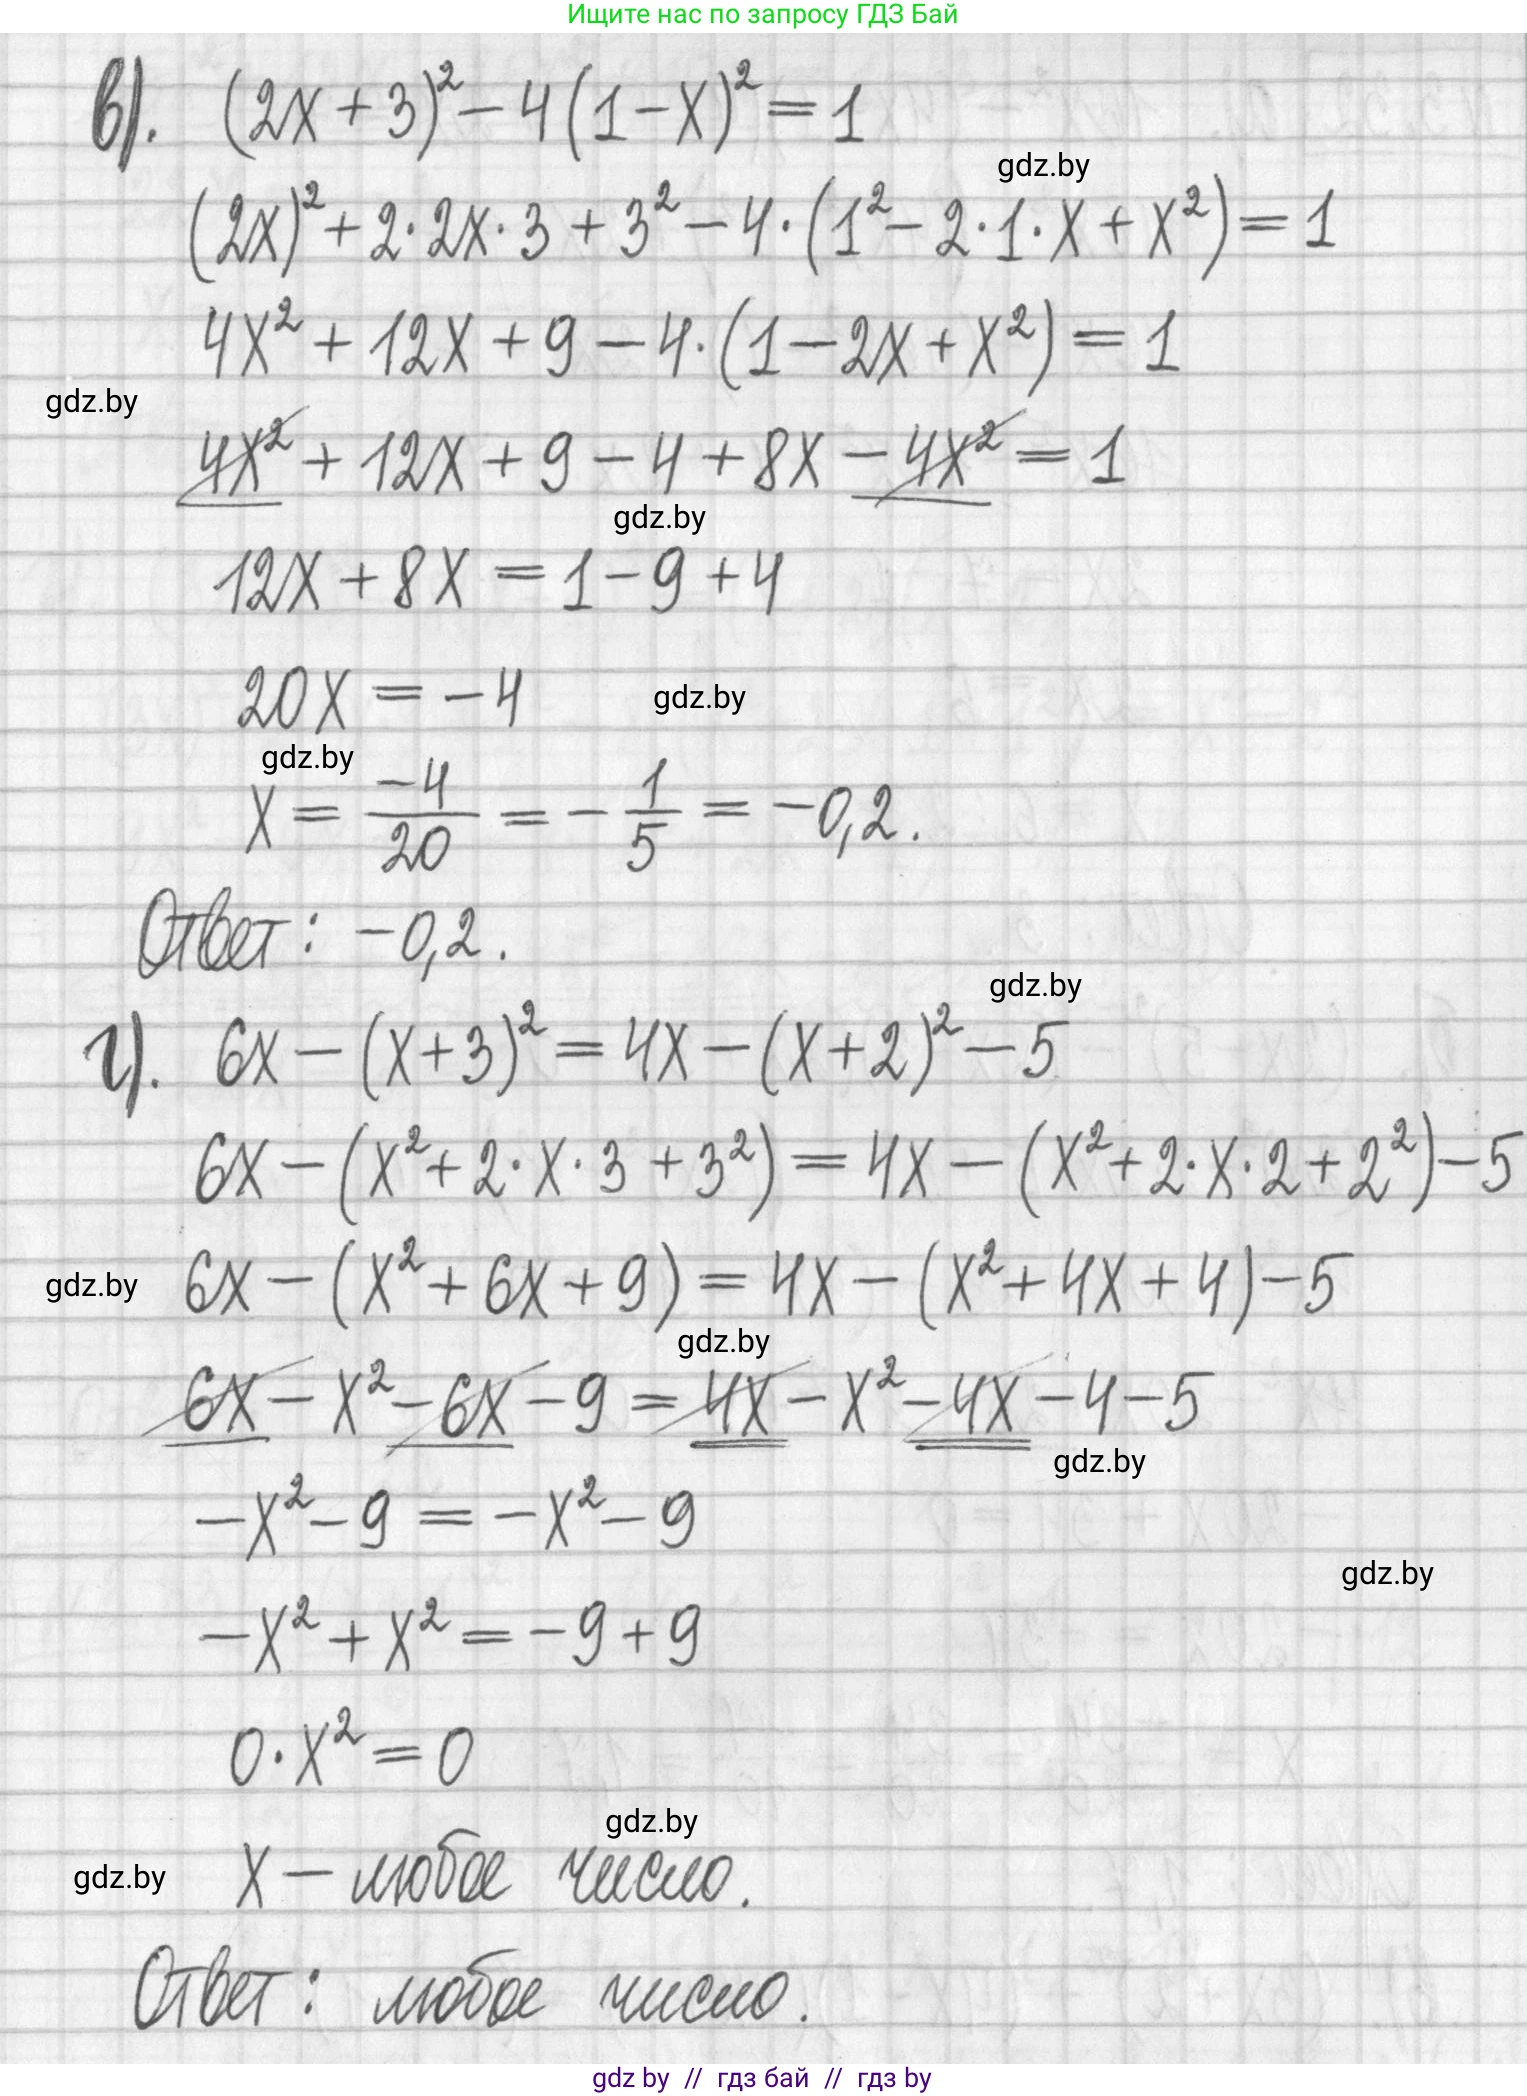 Ищите нас по запросу ГДЗ Бай
в). (2x+3)² − 4(1−x)² = 1
gdz.by
(2x)² + 2·2x·3 + 3² − 4·(1² − 2·1·x + x²) = 1
4x² + 12x + 9 − 4·(1 − 2x + x²) = 1
gdz.by
4x² + 12x + 9 − 4 + 8x − 4x² = 1
gdz.by
12x + 8x = 1 − 9 + 4
20x = −4
gdz.by
gdz.by
x = −4/20 = −1/5 = −0,2.
Ответ: −0,2.
gdz.by
г). 6x − (x+3)² = 4x − (x+2)² − 5
6x − (x² + 2·x·3 + 3²) = 4x − (x² + 2·x·2 + 2²) − 5
gdz.by
6x − (x² + 6x + 9) = 4x − (x² + 4x + 4) − 5
gdz.by
6x − x² − 6x − 9 = 4x − x² − 4x − 4 − 5
gdz.by
−x² − 9 = −x² − 9
gdz.by
−x² + x² = −9 + 9
0·x² = 0
gdz.by
gdz.by
x − любое число.
Ответ: любое число.
gdz by // гдз бай // гдз by